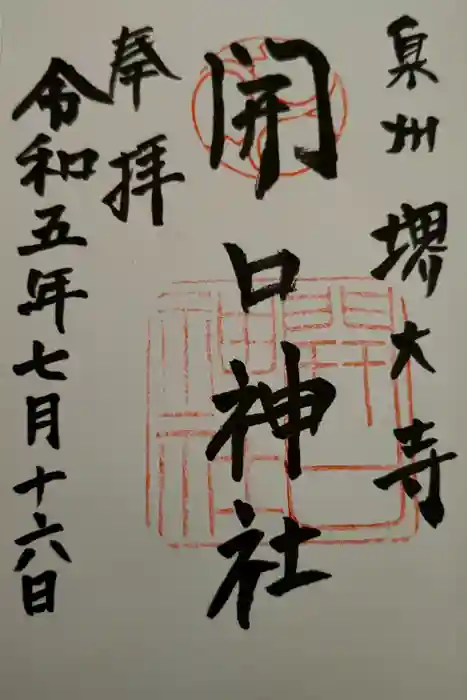 泉州 堺大寺
開口神社
奉拝
令和五年七月十六日
開口神社